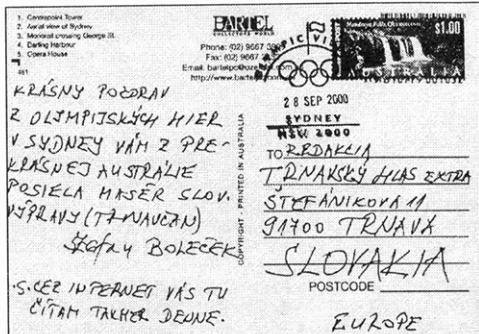 1. Centrepoint Tower
2. Aerial view of Sydney
3. Monorail crossing George St.
4. Darling Harbour
5. Opera House
461
BARTEL
COLLECTORS WORLD
Phone: (02) 9667 3
Fax: (02)
Email: bartelpo@oze
http://www.bartel
$1.00
28 SEP 2000
SYDNEY
NSW 2000
KRÁSNY POZDRAV
Z OLYMPIJSKÝCH HIER
V SYDNEY VÁM Z PRE-
KRÁSNEJ AUSTRÁLIE
POSIELA MASÉR SLOV.
VÝPRAVY (TRNAVČAN)
BOLEČEK
.S. CEZ INTERNET VÁS TU
ČÍTAM TAKMER DENNE.
COPYRIGHT - PRINTED IN AUSTRALIA
TO REDAKCIA
TRNAVSKÝ HLAS EXTRA
ŠTEFÁNIKOVA 11
91700 TRNAVA
SLOVAKIA
POSTCODE
EUROPE